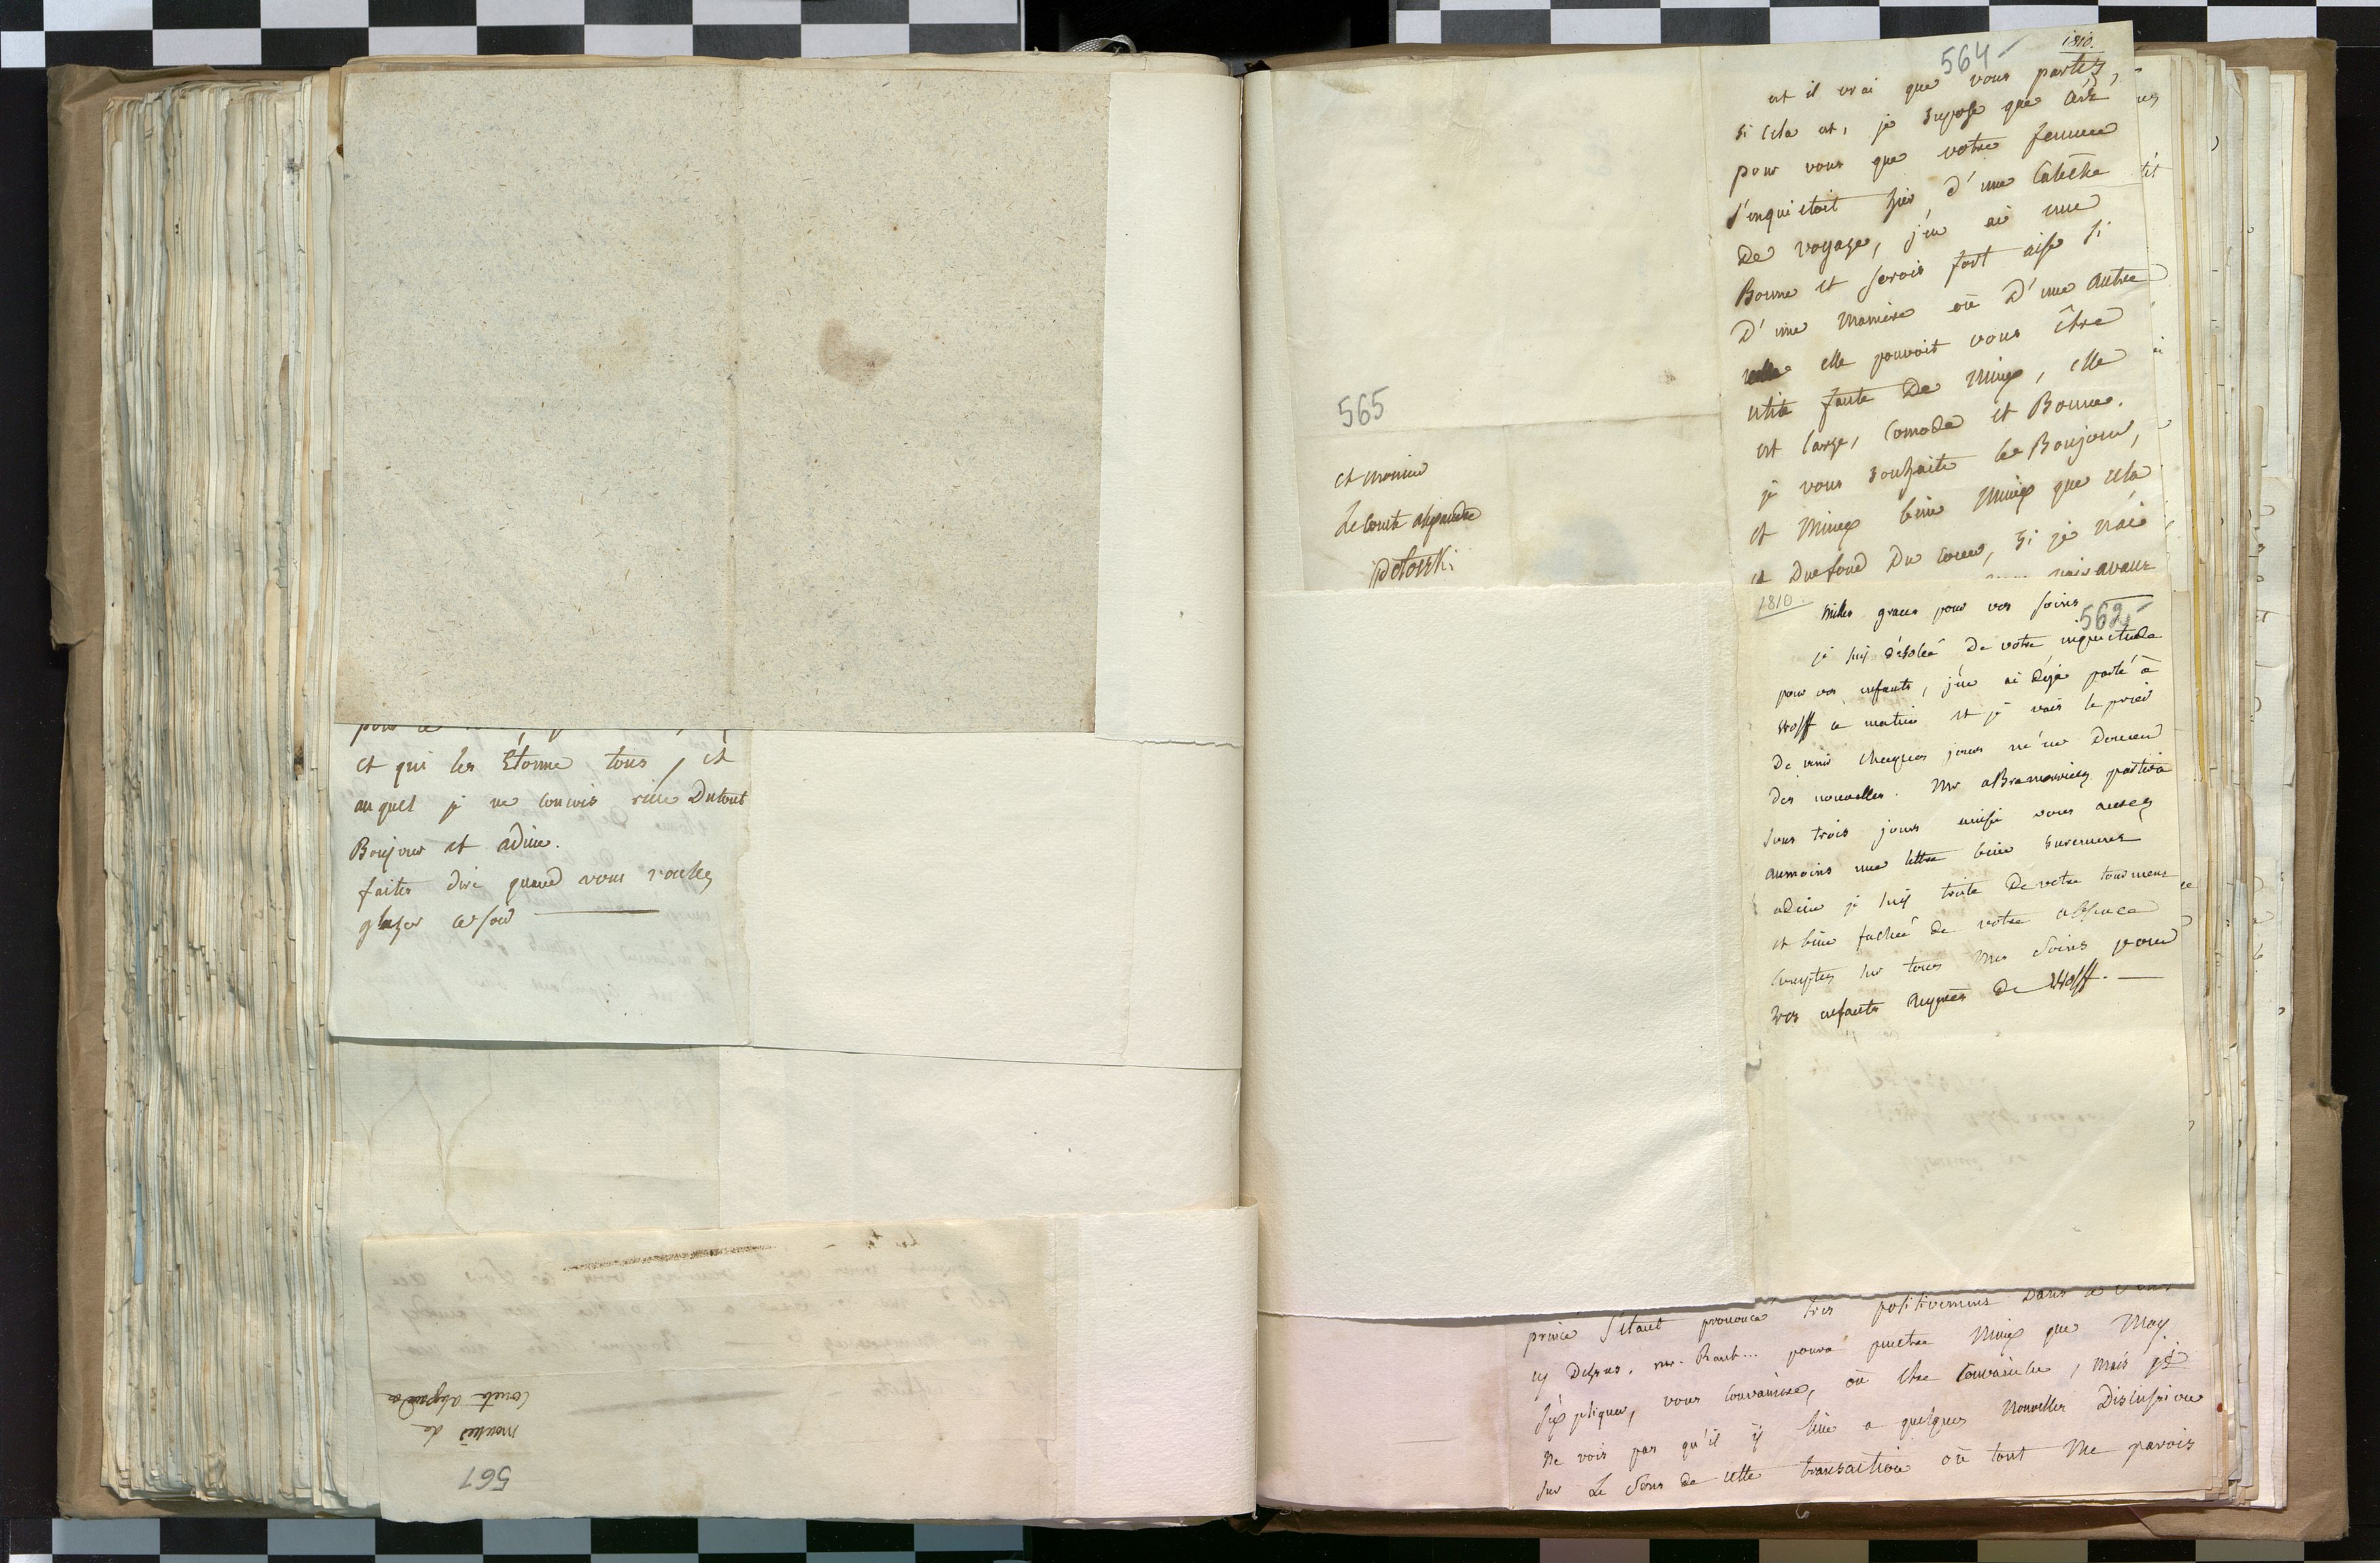 et qui les Étonne tous, et
auquel je ne concois rien Dutout
Bonjour et adieu.
faites dire quand vous voulez
ce soir
monsieur le
Comte alexandre
561
565
et monsieur
Le comte alexandre
Potocki
564
1810.
est il vrai que vous partez,
si cela est, je supose que c'est
pour vous que votre femme
s'enquietoit hier d'une Caleche
De voyage, j'en ai une
Bonne et serois fort aise si
D'une maniere ou D'une autre
elle pouvoit vous être
utile faute De mieux, elle
est large, comode et Bonne.
je vous souhaite le Bonjour,
et mieux bien mieux que cela
et Du fond Du coeur, si je n'ai
1810
562
milles graces pour vos soins
je suis désolée De votre inquietude
pour vos enfants, j'en ai déja parlé à
Wolff ce matin et je vais le prier
De venir chaques jours m'en Donner
Des nouvelles. Mr aBramowicz partira
sous trois jours ainsi vous aurez
aumoins une lettre bien surement
adieu je suis triste De votre tourment
et bien fachée de votre absence
comptez sur tous mes soins pour
vos enfants aupres De Wolff.
prince s'étant prononcé tres positivement Dans
Mr. Raut... poura peutetre mieux que Moy
s'expliquer, vous convaincre, ou etre convaincu, mais je
ne vois pas qu'il y lieu a quelques nouvelles Discussion
sur Le sens de cette transaction où tout me parois